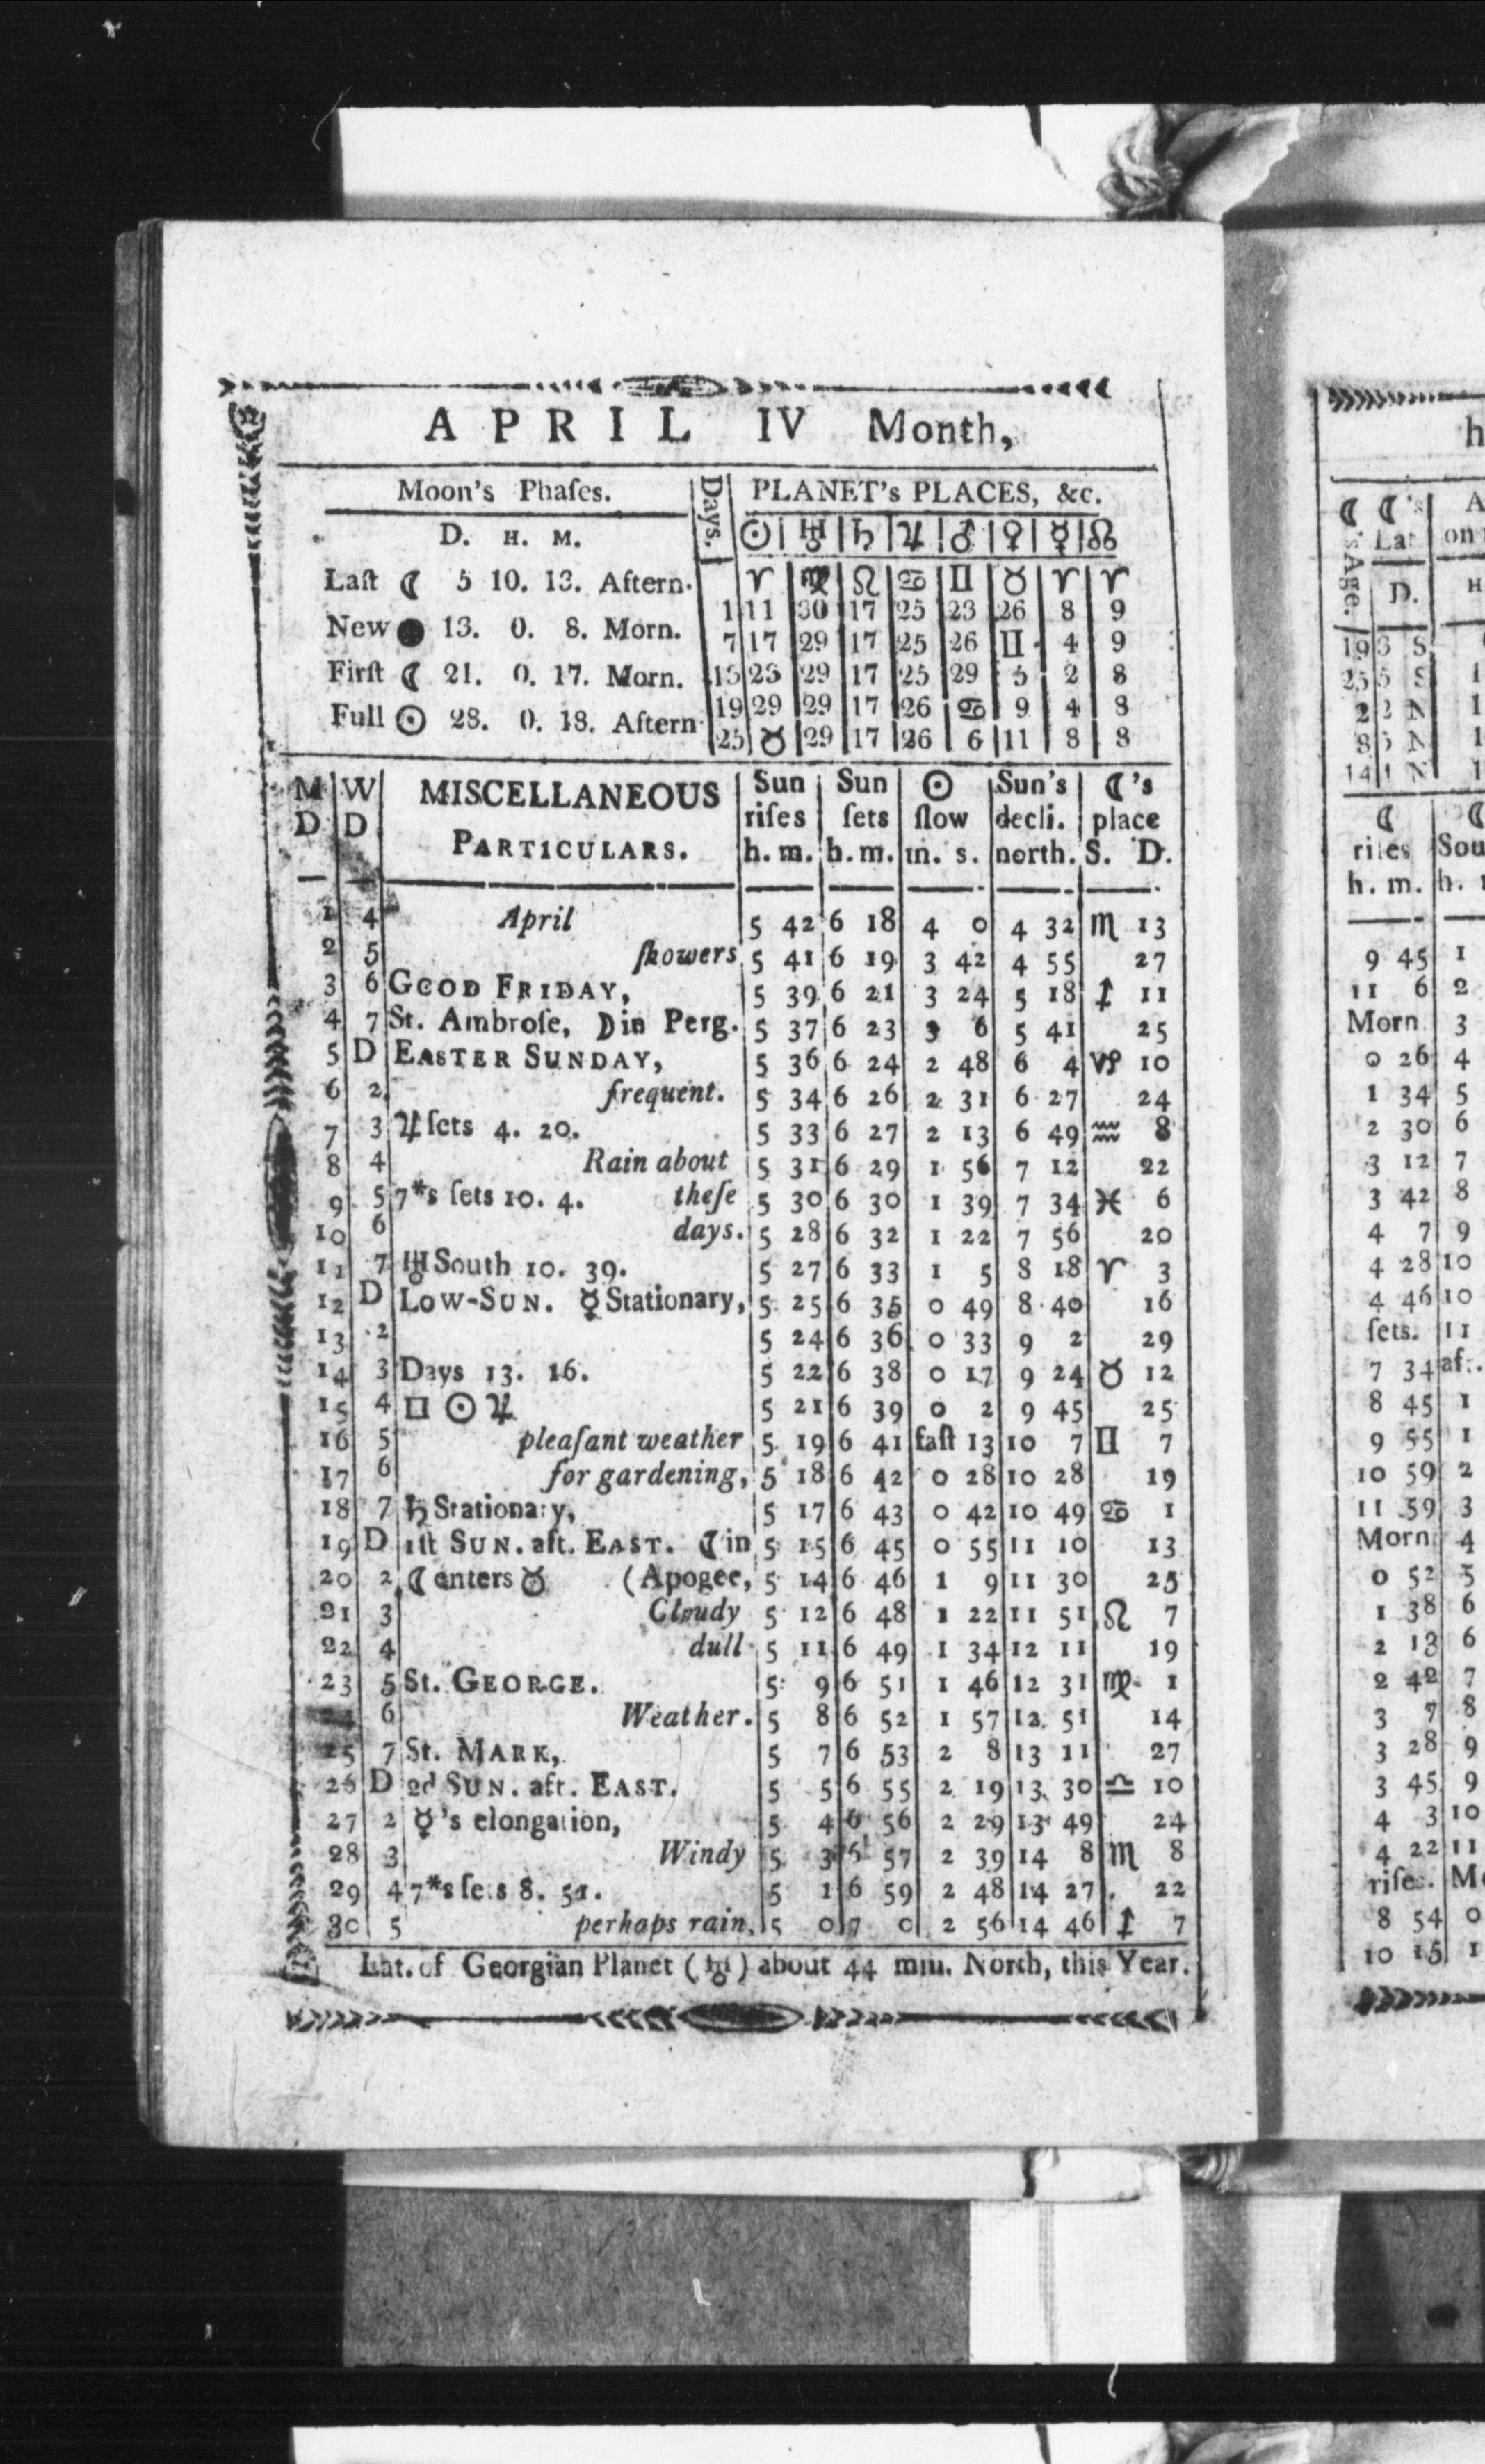 APRIL IV Month,
Moon's Phaſes.
D. H. M.
Laſt ☾ 5 10. 13. Aftern.
New ● 13. 0. 8. Morn.
Firſt ☾ 21. 0. 17. Morn.
Full ☉ 28. 0. 18. Aftern
Days. PLANET's PLACES, &c.
☉ ♅ ♄ ♃ ♂ ♀ ☿ ☊
♈ ♍ ♌ ♋ ♊ ♉ ♈ ♈
1 11 30 17 25 23 26 8 9
7 17 29 17 25 26 ♊ 4 9
13 23 29 17 25 29 5 2 8
19 29 29 17 26 ♋ 9 4 8
25 ♉ 29 17 26 6 11 8 8
M D W D MISCELLANEOUS PARTICULARS. Sun riſes h. m. Sun ſets h. m. ☉ ſlow m. s. Sun's decli. north. ☾'s place S. D.
1 4 April 5 42 6 18 4 0 4 32 ♏ 13
2 5 ſhowers 5 41 6 19 3 42 4 55 27
3 6 GOOD FRIDAY, 5 39 6 21 3 24 5 18 ♐ 11
4 7 St. Ambroſe, ☽ in Perg. 5 37 6 23 3 6 5 41 25
5 D EASTER SUNDAY, 5 36 6 24 2 48 6 4 ♑ 10
6 2 frequent. 5 34 6 26 2 31 6 27 24
7 3 ♃ ſets 4. 20. 5 33 6 27 2 13 6 49 ♒ 8
8 4 Rain about 5 31 6 29 1 56 7 12 22
9 5 7*s ſets 10. 4. theſe 5 30 6 30 1 39 7 34 ♓ 6
10 6 days. 5 28 6 32 1 22 7 56 20
11 7 ♅ South 10. 39. 5 27 6 33 1 5 8 18 ♈ 3
12 D LOW-SUN. ☿ Stationary, 5 25 6 35 0 49 8 40 16
13 2 5 24 6 36 0 33 9 2 29
14 3 Days 13. 16. 5 22 6 38 0 17 9 24 ♉ 12
15 4 □ ☉ ♃ 5 21 6 39 0 2 9 45 25
16 5 pleaſant weather 5 19 6 41 faſt 13 10 7 ♊ 7
17 6 for gardening, 5 18 6 42 0 28 10 28 19
18 7 ♄ Stationary, 5 17 6 43 0 42 10 49 ♋ 1
19 D 1ſt SUN. aft. EAST. ☾ in 5 15 6 45 0 55 11 10 13
20 2 ☾ enters ♉ (Apogee, 5 14 6 46 1 9 11 30 25
21 3 Cloudy 5 12 6 48 1 22 11 51 ♌ 7
22 4 dull 5 11 6 49 1 34 12 11 19
23 5 St. GEORGE. 5 9 6 51 1 46 12 31 ♍ 1
6 Weather. 5 8 6 52 1 57 12 51 14
25 7 St. MARK, 5 7 6 53 2 8 13 11 27
26 D 2d SUN. aft. EAST. 5 5 6 55 2 19 13 30 ♎ 10
27 2 ☿'s elongation, 5 4 6 56 2 29 13 49 24
28 3 Windy 5 3 6 57 2 39 14 8 ♏ 8
29 4 7*s ſets 8. 51. 5 1 6 59 2 48 14 27 22
30 5 perhaps rain. 5 0 7 0 2 56 14 46 ♐ 7
Lat. of Georgian Planet (♅) about 44 min. North, this Year.
h
☾'s Age. ☾'s Lat. D. A on H
19 3 S
25 5 S 1
2 2 N 1
8 5 N 1
14 1 N 1
☾ riſes h. m. ☾ Sou h.
9 45 1
11 6 2
Morn 3
0 26 4
1 34 5
2 30 6
3 12 7
3 42 8
4 7 9
4 28 10
4 46 10
ſets. 11
7 34 aft.
8 45 1
9 55 1
10 59 2
11 59 3
Morn 4
0 52 5
1 38 6
2 13 6
2 42 7
3 7 8
3 28 9
3 45 9
4 3 10
4 22 11
riſes. M
8 54 0
10 15 1